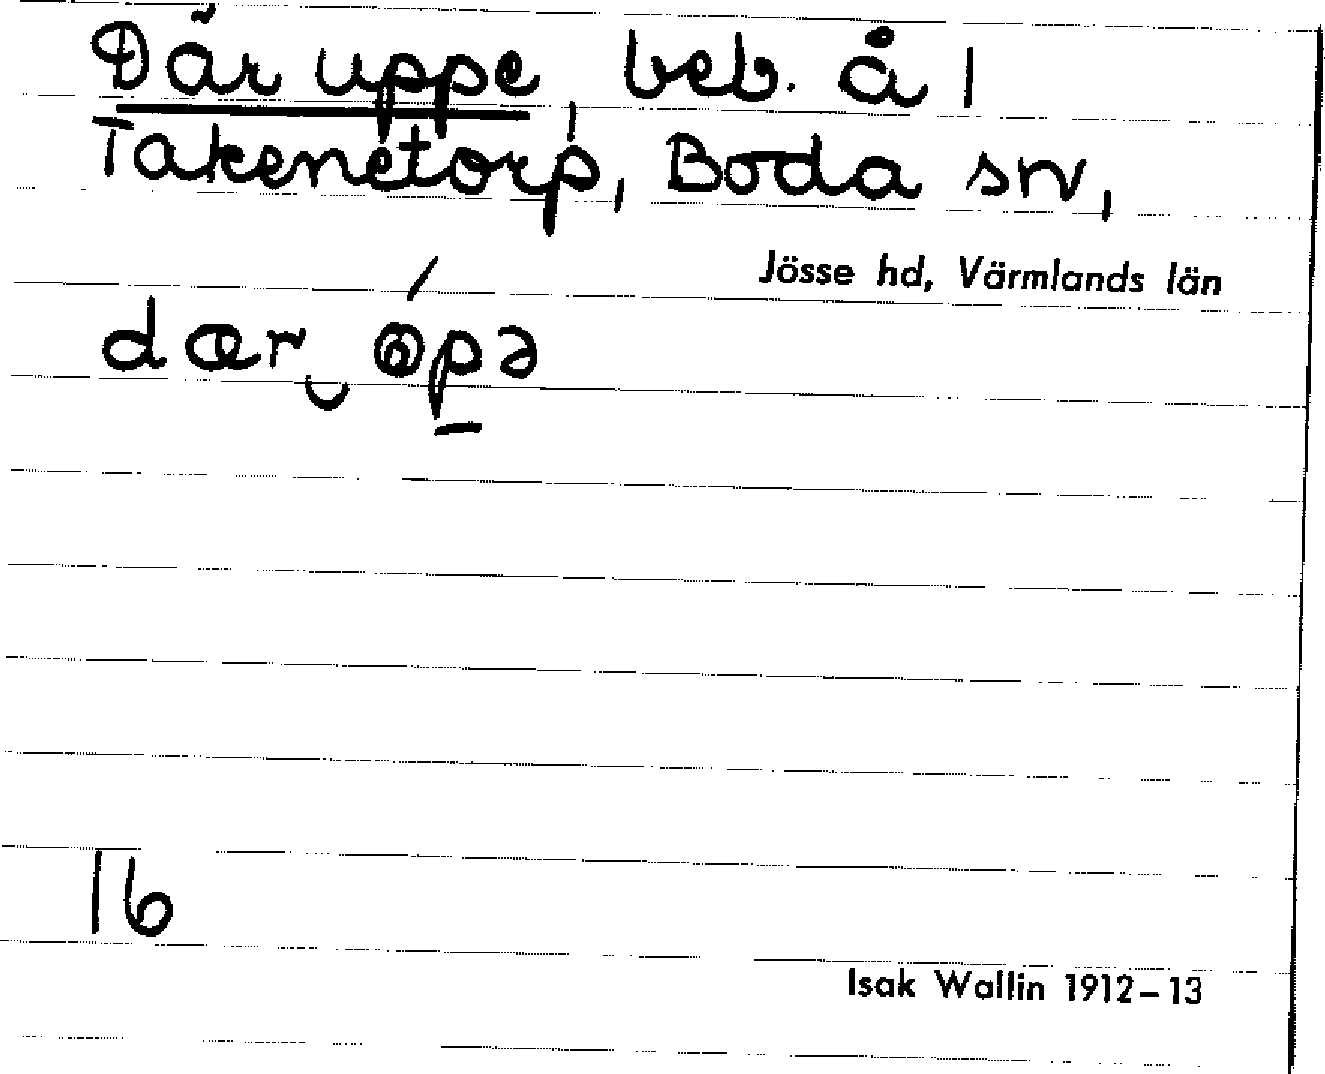 Där uppe, beb. å 1
Takenetorp, Boda sn,
Jösse hd, Värmlands län
dær ópə
16
Isak Wallin 1912–13